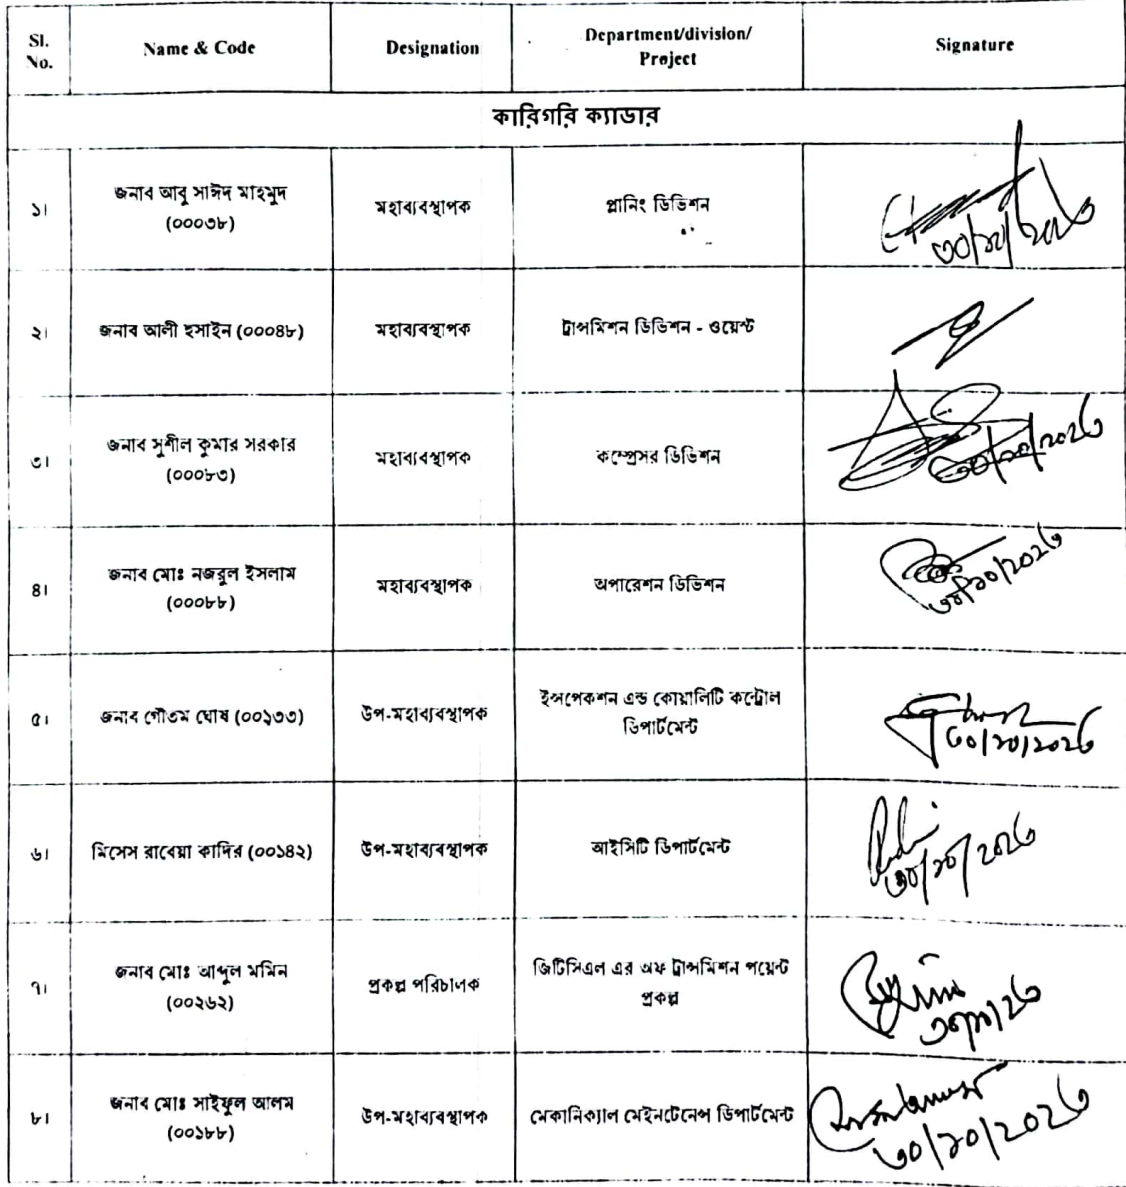 Sl. No.
Name & Code
Designation
Department/division/
Project
Signature
কারিগরি ক্যাডার
১।
জনাব আবু সাঈদ মাহমুদ
(০০০৩৮)
মহাব্যবস্থাপক
প্লানিং ডিভিশন
৩০/১০/২০২৩
২।
জনাব আলী হুসাইন (০০০৪৮)
মহাব্যবস্থাপক
ট্রান্সমিশন ডিভিশন - ওয়েস্ট
৩।
জনাব সুশীল কুমার সরকার
(০০০৮৩)
মহাব্যবস্থাপক
কম্প্রেসর ডিভিশন
৩০/১০/২০২৩
৪।
জনাব মোঃ নজরুল ইসলাম
(০০০৮৮)
মহাব্যবস্থাপক
অপারেশন ডিভিশন
৩০/১০/২০২৩
৫।
জনাব গৌতম ঘোষ (০০১৩৩)
উপ-মহাব্যবস্থাপক
ইন্সপেকশন এন্ড কোয়ালিটি কন্ট্রোল
ডিপার্টমেন্ট
৩০/১০/২০২৩
৬।
মিসেস রাবেয়া কাদির (০০১৪২)
উপ-মহাব্যবস্থাপক
আইসিটি ডিপার্টমেন্ট
৩০/১০/২০২৩
৭।
জনাব মোঃ আব্দুল মমিন
(০০২৬২)
প্রকল্প পরিচালক
জিটিসিএল এর অফ ট্রান্সমিশন পয়েন্ট
প্রকল্প
৩০/১০/২৩
৮।
জনাব মোঃ সাইফুল আলম
(০০১৮৮)
উপ-মহাব্যবস্থাপক
মেকানিক্যাল মেইনটেনেন্স ডিপার্টমেন্ট
৩০/১০/২০২৩